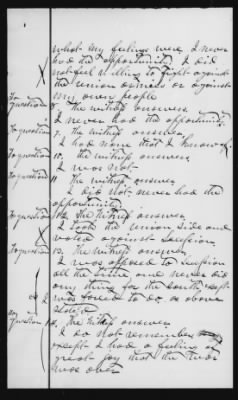 what my feelings were I never
had the opportunity. I did
not feel willing to fight against
the union or against
my own people
To question 8. the witness answers
I never had the opportunity
To question 9. the witness answers
I had none that I know of
To question 10. the witness answers
I was not
To question 11. the witness answers
I did not never had the
opportunity
To question 12. the witness answers
I took the union side and
voted against Secession
To question 13. the witness answers
I was opposed to Secession
all the time and never did
any thing for the south except
was forced to do as above
stated
question the witness answers
I do not remember
except I had a feeling of
great joy that the war
was over